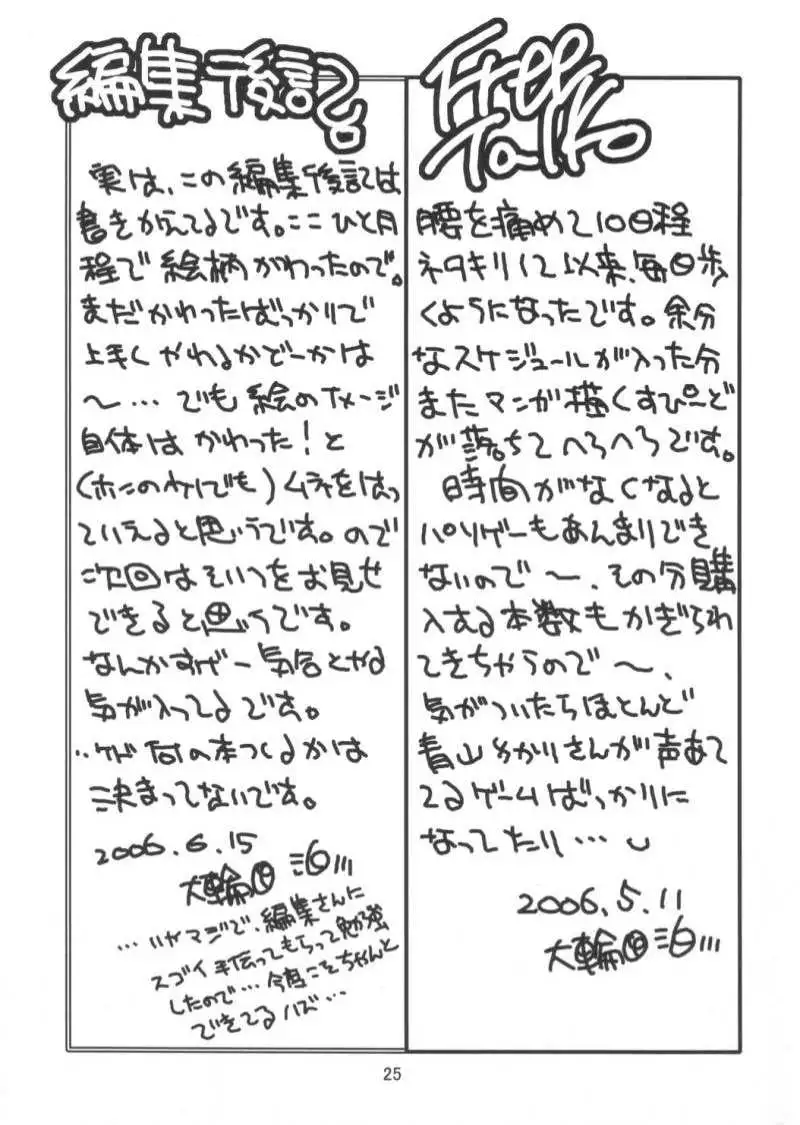 編集後記
実は、この編集後記は
書きかえてるです。ここひと月
程で絵柄がわったので。
まだかわったばっかりで
上手くやれるかどーかは
～… でも絵のイメージ
自体はかわった！と
(ホンのウソでも)ムネをはっ
ていえると思うです。ので
次回はそいつをお見せ
できると思うです。
なんかすげー気合とやる
気が入ってるです。
‥ケド何の本つくるかは
決まってないです。
2006.6.15
大輪
…いやマジで、編集さんに
スゴイ手伝ってもらって勉強
したので…今度こそちゃんと
できてるハズ…
Free
Talk
腰を痛めて10日程
ネタキリして以来、毎日歩
くようになったです。余分
なスケジュールが入った分
またマンが描くすぴーど
が落ちてへろへろです。
時間がなくなると
パソゲーもあんまりでき
ないので～、その分購
入する本数もかぎられ
てきちゃうので～、
気がついたらほとんど
青山ゆかりさんが声あて
てるゲームばっかりに
なってたり…
2006.5.11
大輪
25